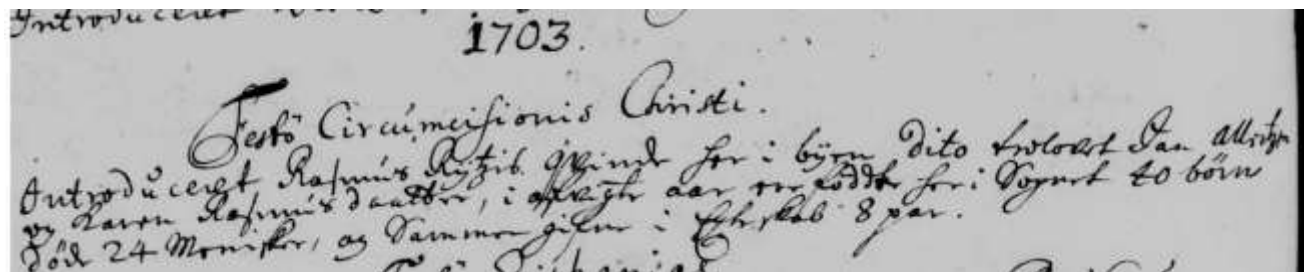 Introduceret
1703.
Festo Circumcisionis Christi.
Introduceret Rasmus Qvinde her i byen dito trolovet Jan
og Karen Rasmusdaatter, i afvigte aar ere födde her i Sognet 40 börn
döde 24 Menisker, og Sammen givne i Echteskab 8 par.